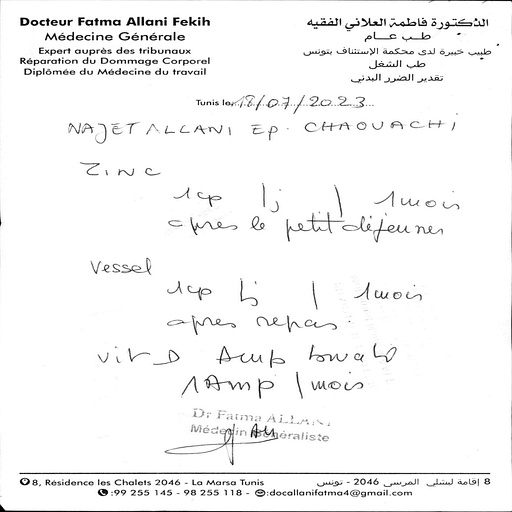 Docteur Fatma Allani Fekih
Médecine Générale
Expert auprès des tribunaux
Réparation du Dommage Corporel
Diplômée du Médecine du travail
الدكتورة فاطمة العلاني الفقيه
طب عام
طبيب خبيرة لدى محكمة الإستئناف بتونس
طب الشغل
تقدير الضرر البدني
Tunis le 18/07/2023
NAJET ALLANI EP. CHAOUACHI
ZINC
1cp /j / 1mois
apres le petit déjeuner
Vessel
1cp /j / 1mois
apres repas.
vit D Amp buvable
1Amp / mois
Dr Fatma ALLANI
Médecin Généraliste
8, Résidence les Chalets 2046 - La Marsa Tunis
8 إقامة لشلي المرسى 2046 - تونس
:99 255 145 - 98 255 118 - :docallanifatma4@gmail.com